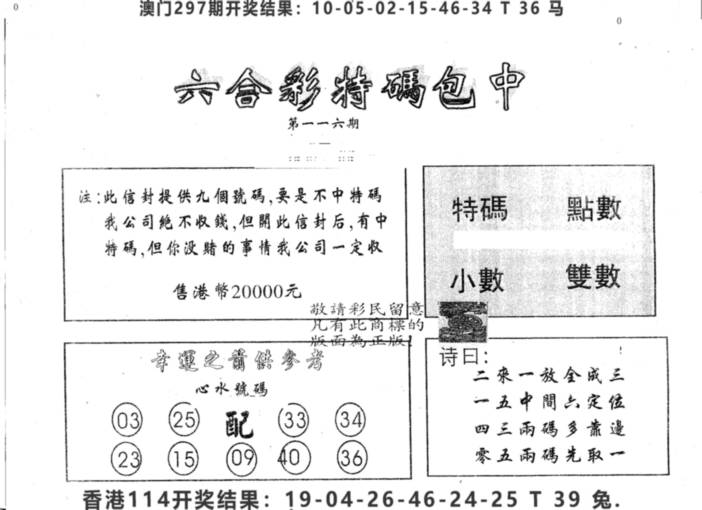 澳门297期开奖结果：10-05-02-15-46-34 T 36 马
0
0
六合彩特碼包中
第一一六期
注:此信封提供九個號碼,要是不中特碼
我公司絶不收錢,但開此信封后,有中
特碼,但你没賭的事情我公司一定收
售港幣20000元
特碼 點數
小數 雙數
敬請彩民留意
凡有此商標的
版面為正版!
幸運之前供參考
心水號碼
03 25 配 33 34
23 15 09 40 36
诗曰:
二來一放全成三
一五中間六定位
四三兩碼多靠邊
零五兩碼先取一
香港114开奖结果：19-04-26-46-24-25 T 39 兔.